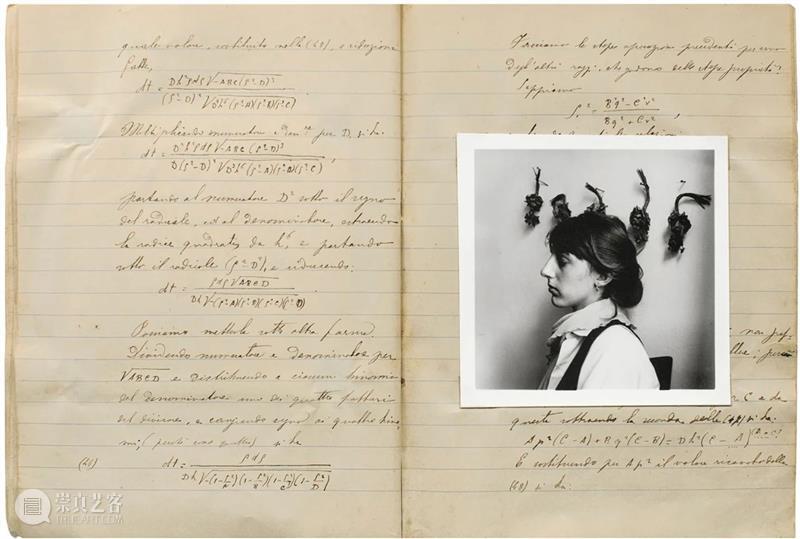 quale valore, sostituito nella (48), e riduzione
fatte,
dt = Dh²ρdρ√-ABC(ρ²-D)² / (ρ²-D)²√D³h⁶(ρ²-A)(ρ²-B)(ρ²-C)
Moltiplicando numeratore e per D, si ha.
dt = D²h²ρdρ√-ABC(ρ²-D)² / D(ρ²-D)²√D³h⁶(ρ²-A)(ρ²-B)(ρ²-C) ,
portando al numeratore D² sotto il segno
del radicale, ed al denominatore, estraendo
la radice quadrata da h⁶, e portando
sotto il radicale (ρ²-D)², e riducendo:
dt = ρdρ√ABCD / Dh√-(ρ²-A)(ρ²-B)(ρ²-C)(ρ²-D) .
Possiamo metterla sotto altra forma.
Dividendo numeratore e denominatore per
√ABCD e distribuendo a ciascun binomio
del denominatore uno dei quattro fattori
del divisore, e cangiando segno ai quattro bino
mi, (perchè sono quattro) si ha
(49) dt = ρdρ / Dh√-(1-ρ²/A)(1-ρ²/B)(1-ρ²/C)(1-ρ²/D)
le stesse operazioni precedenti per uno
degli altri raggi, che godono della stessa proprietà.
Sappiamo
B²q² - C²r² / Bq² + Cr² ,
C e da
questa sottraendo la seconda delle si ha.
Ap²(C-A) + Bq²(C-B) = Dh²(C-
E sostituendo per Ap² il valore ricavato dalla
(48) si ha:
崇真艺客
TRUEART.COM